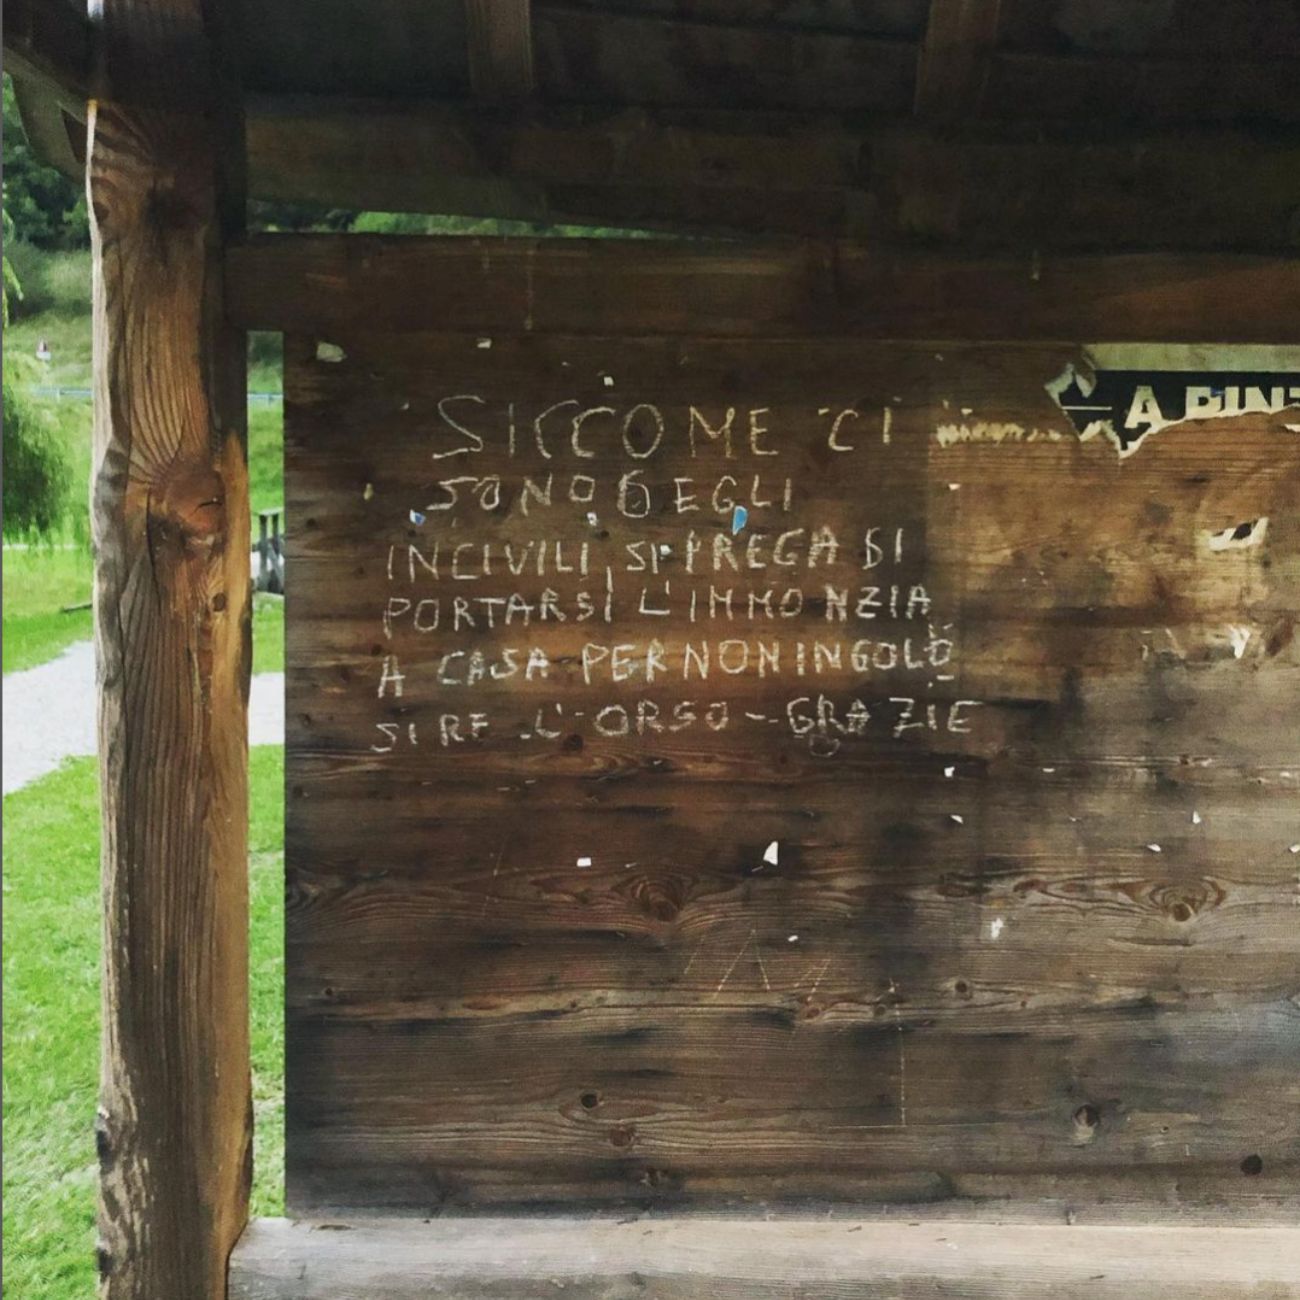 SICCOME CI
SONO DEGLI
INCIVILI, SI PREGA DI
PORTARSI L'IMMONZIA
A CASA PER NON INGOLO
SIRE L'ORSO - GRAZIE
A PINZ